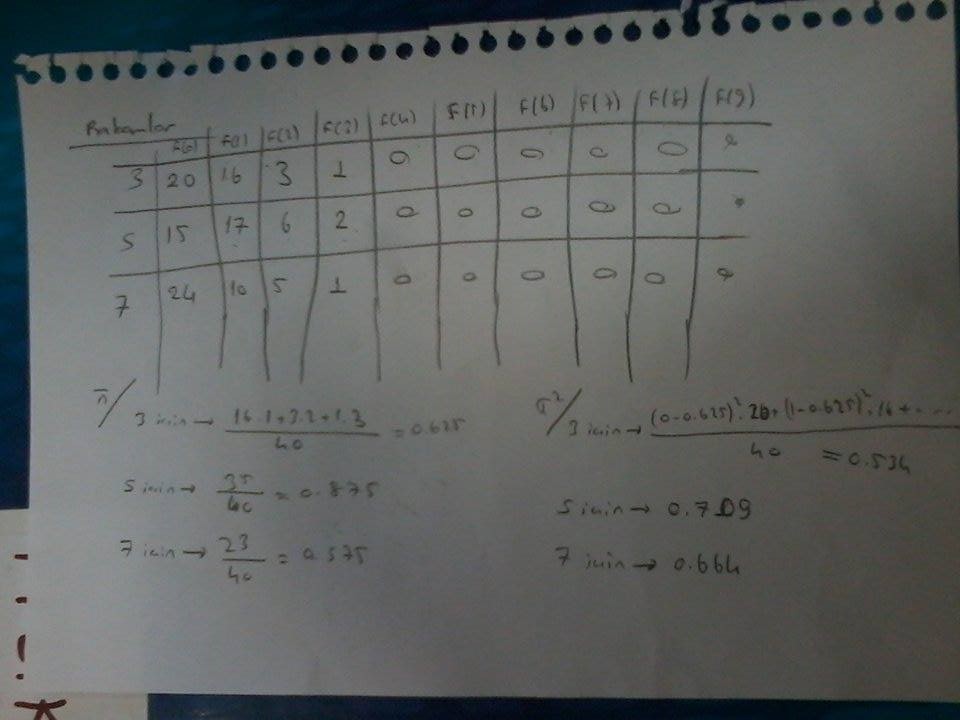 Rakamlar F(0) F(1) F(2) F(3) F(4) F(5) F(6) F(7) F(8) F(9)
3 20 16 3 1 0 0 0 0 0 0
5 15 17 6 2 0 0 0 0 0 0
7 24 10 5 1 0 0 0 0 0 0
n̄/ 3 için → 16.1+3.2+1.3 / 40 = 0.625
5 için → 35/40 = 0.875
7 için → 23/40 = 0.575
σ²/ 3 için → (0-0.625)².20+(1-0.625)².16+.... / 40 = 0.534
5 için → 0.709
7 için → 0.664